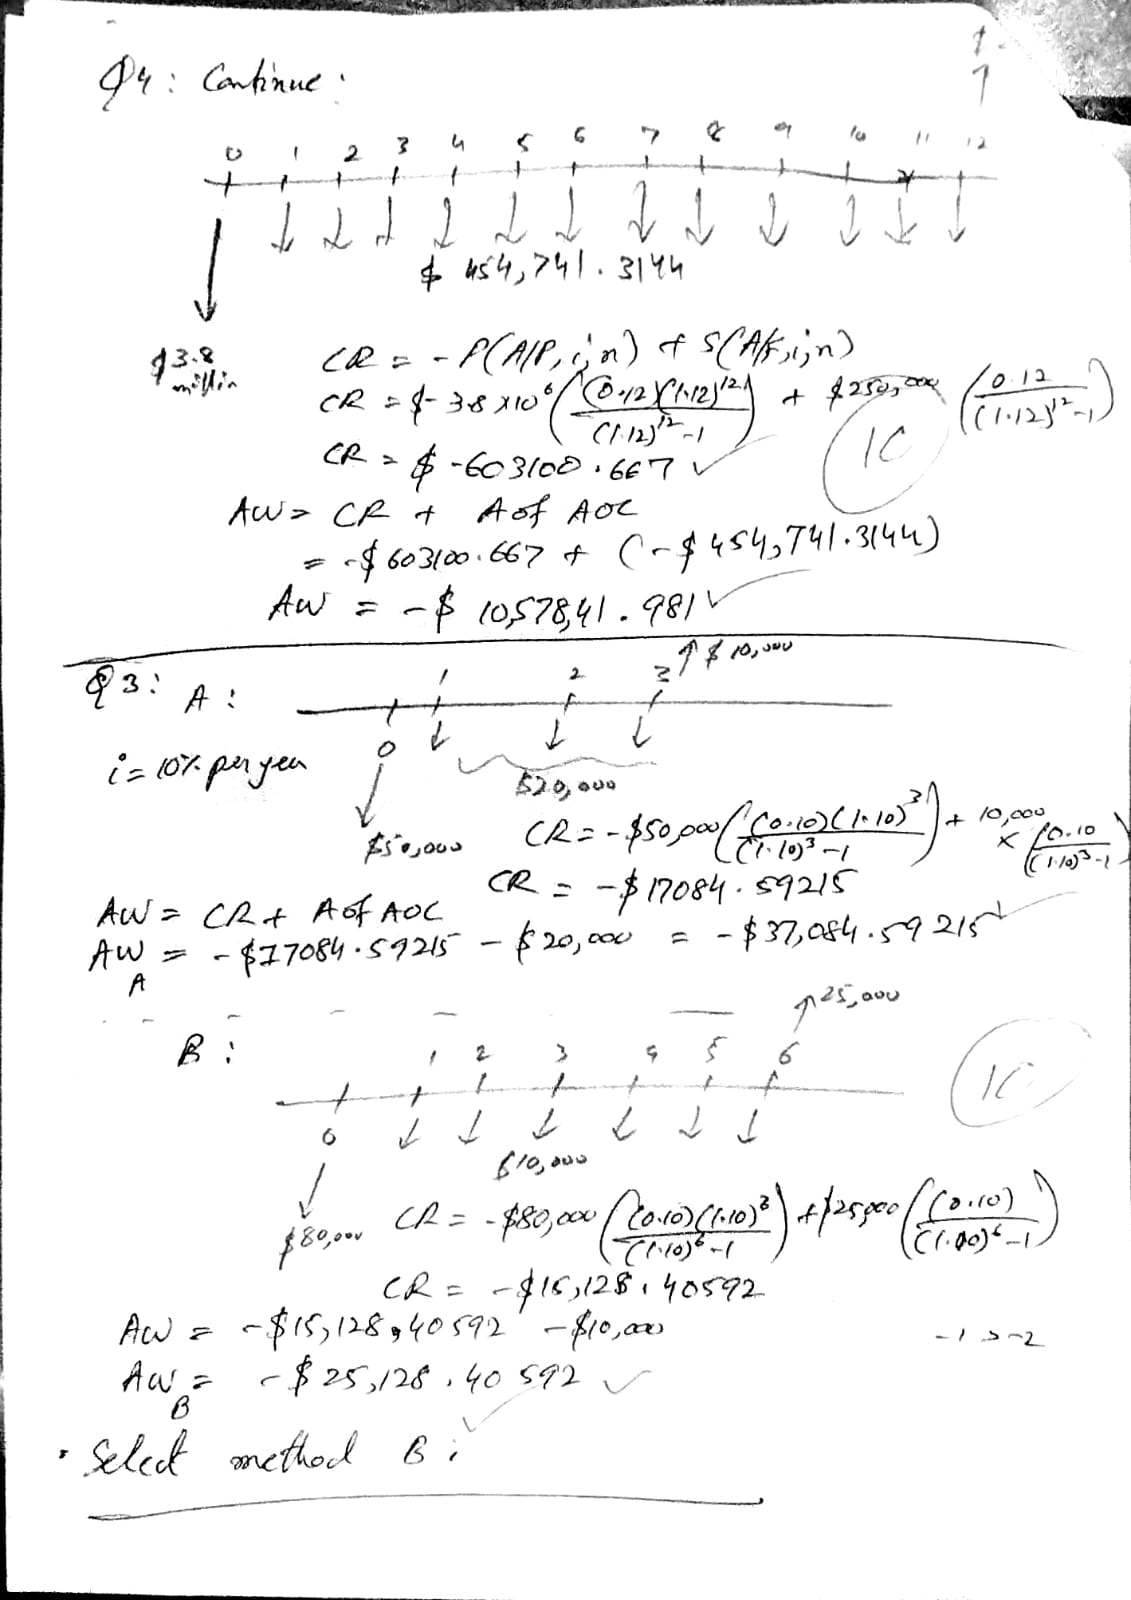 Q4: Continue:
$
0 1 2 3 4 5 6 7 8 9 10 11 12
$ 454,741.3144
$3.8 million
CR = - P(A/P, i, n) + S(A/F, i, n)
CR = $-3.8 x10^6 ((0.12)(1.12)^12 / (1.12)^12 -1) + $250,000 (0.12 / (1.12)^12 -1)
CR = $ -603100.667 ✓
10
AW = CR + A of AOC
= -$ 603100.667 + (-$ 454,741.3144)
AW = -$ 10,578,41.981 ✓
Q3: A:
1 2 3 $ 10,000
0
i = 10% per year
$20,000
$50,000
CR = -$50,000 ((0.10)(1.10)^3 / (1.10)^3 -1) + 10,000 x (0.10 / (1.10)^3 -1)
CR = -$ 17084.59215
AW = CR + A of AOC
AW A = -$17084.59215 - $20,000 = -$37,084.59215 ✓
25,000
B:
1 2 3 4 5 6
10
0
$10,000
$80,000
CR = -$80,000 ((0.10)(1.10)^6 / (1.10)^6 -1) + $25,000 ((0.10) / (1.10)^6 -1)
CR = -$15,128.40592
AW = -$15,128.40592 - $10,000
-1 > -2
AW B = -$ 25,128.40592 ✓
Select method B: